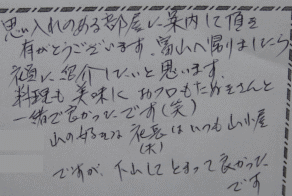 思い入れのある部屋に案内して頂き
有がとうございます。富山へ帰りましたら
親に紹介したいと思います。
料理も美味しく
一緒で良かったです(笑)
山の好きな
はいつも山小屋
ですが、下山してとまって良かった
です